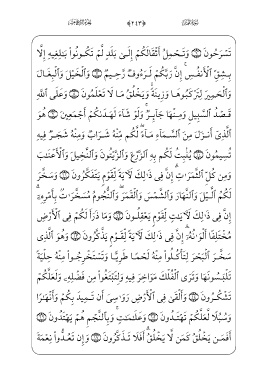 تَسْرَحُونَ ۝ وَتَحْمِلُ أَثْقَالَكُمْ إِلَىٰ بَلَدٍ لَّمْ تَكُونُوا۟ بَـٰلِغِيهِ إِلَّا
بِشِقِّ ٱلْأَنفُسِ ۚ إِنَّ رَبَّكُمْ لَرَءُوفٌ رَّحِيمٌ ۝ وَٱلْخَيْلَ وَٱلْبِغَالَ
وَٱلْحَمِيرَ لِتَرْكَبُوهَا وَزِينَةً ۚ وَيَخْلُقُ مَا لَا تَعْلَمُونَ ۝ وَعَلَى ٱللَّهِ
قَصْدُ ٱلسَّبِيلِ وَمِنْهَا جَآئِرٌ ۚ وَلَوْ شَآءَ لَهَدَىٰكُمْ أَجْمَعِينَ ۝ هُوَ
ٱلَّذِىٓ أَنزَلَ مِنَ ٱلسَّمَآءِ مَآءً ۖ لَّكُم مِّنْهُ شَرَابٌ وَمِنْهُ شَجَرٌ فِيهِ
تُسِيمُونَ ۝ يُنۢبِتُ لَكُم بِهِ ٱلزَّرْعَ وَٱلزَّيْتُونَ وَٱلنَّخِيلَ وَٱلْأَعْنَـٰبَ
وَمِن كُلِّ ٱلثَّمَرَٰتِ ۗ إِنَّ فِى ذَٰلِكَ لَـَٔايَةً لِّقَوْمٍ يَتَفَكَّرُونَ ۝ وَسَخَّرَ
لَكُمُ ٱلَّيْلَ وَٱلنَّهَارَ وَٱلشَّمْسَ وَٱلْقَمَرَ ۖ وَٱلنُّجُومُ مُسَخَّرَٰتٌۢ بِأَمْرِهِۦٓ ۗ
إِنَّ فِى ذَٰلِكَ لَـَٔايَـٰتٍ لِّقَوْمٍ يَعْقِلُونَ ۝ وَمَا ذَرَأَ لَكُمْ فِى ٱلْأَرْضِ
مُخْتَلِفًا أَلْوَٰنُهُۥٓ ۗ إِنَّ فِى ذَٰلِكَ لَـَٔايَةً لِّقَوْمٍ يَذَّكَّرُونَ ۝ وَهُوَ ٱلَّذِى
سَخَّرَ ٱلْبَحْرَ لِتَأْكُلُوا۟ مِنْهُ لَحْمًا طَرِيًّا وَتَسْتَخْرِجُوا۟ مِنْهُ حِلْيَةً
تَلْبَسُونَهَا وَتَرَى ٱلْفُلْكَ مَوَاخِرَ فِيهِ وَلِتَبْتَغُوا۟ مِن فَضْلِهِۦ وَلَعَلَّكُمْ
تَشْكُرُونَ ۝ وَأَلْقَىٰ فِى ٱلْأَرْضِ رَوَٰسِىَ أَن تَمِيدَ بِكُمْ وَأَنْهَـٰرًا
وَسُبُلًا لَّعَلَّكُمْ تَهْتَدُونَ ۝ وَعَلَـٰمَـٰتٍ ۚ وَبِٱلنَّجْمِ هُمْ يَهْتَدُونَ ۝
أَفَمَن يَخْلُقُ كَمَن لَّا يَخْلُقُ ۗ أَفَلَا تَذَكَّرُونَ ۝ وَإِن تَعُدُّوا۟ نِعْمَةَ